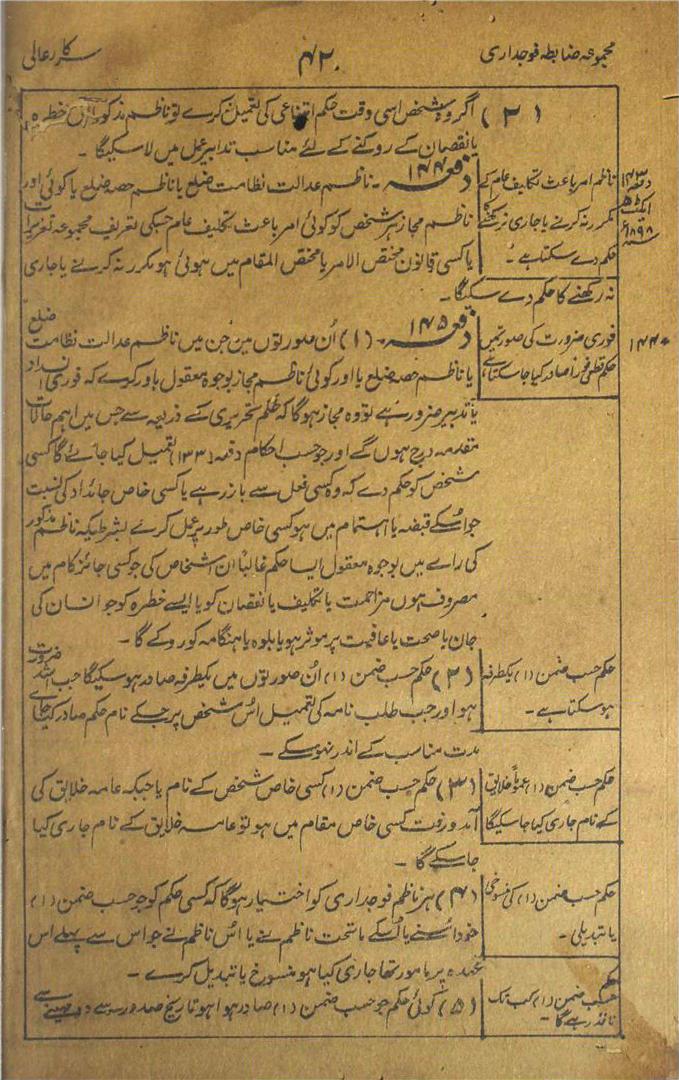 مجموعہ ضابطہ فوجداری
۴۲
سرکار عالی
(۲) اگر وہ شخص اسی وقت حکم امتناعی کی تعمیل نکرے تو ناظم مذکور اس خطرہ
یا نقصان کے روکنے کے لئے مناسب تدابیر عمل میں لا سکیگا ۔
ناظم امر باعث تکلیف عام کے
مکرر نہ کرنے یا جاری نرکھنے کا
حکم دے سکتا ہے ۔
دفعہ ۱۴۳
ایکٹ ۵
۱۸۹۸ء
دفعہ ۱۴۴ ۔ ناظم عدالت نظامت ضلع یا ناظم حصہ ضلع یا کوئی اور
ناظم مجاز ہر شخص کو کوئی امر باعث تکلیف عام جسکی تعریف مجموعہ تعزیرات
یا کسی قانون مختص الامر یا مختص المقام میں ہوئی ہو مکرر نہ کرنے یا جاری
نہ رکھنے کا حکم دے سکیگا ۔
فوری ضرورت کی صورتمیں
حکم قطعی فوراً صادر کیا جا سکتا ہے
۱۴۴
دفعہ ۱۴۵ ۔ (۱) اُن صورتوں میں جن میں ناظم عدالت نظامت ضلع
یا ناظم حصہ ضلع یا اور کوئی ناظم مجاز بوجوہ معقول باور کرے کہ فوری انسداد
یا تدبیر ضرور ہے تو وہ مجاز ہوگا کہ حکم تحریری کے ذریعہ سے جس میں اہم حالات
مقدمہ درج ہوں گے اور جو حسب احکام دفعہ (۱۳۳) تعمیل کیا جائے گا کسی
شخص کو حکم دے کہ وہ کسی فعل سے باز رہے یا کسی خاص جائداد کی نسبت
جو اُسکے قبضہ یا اہتمام میں ہو کسی خاص طور پر عمل کرے بشرطیکہ ناظم مذکور
کی رائے میں بوجوہ معقول ایسا حکم غالباً ان اشخاص کی جو کسی جائز کام میں
مصروف ہوں مزاحمت یا تکلیف یا نقصان کو یا ایسے خطرہ کو جو انسان کی
جان یا صحت یا عافیت پر موثر ہو یا بلوہ یا ہنگامہ کو روکے گا ۔
حکم حسب ضمن (۱) یکطرفہ
ہو سکتا ہے ۔
(۲) حکم حسب ضمن (۱) اُن صورتوں میں یکطرفہ صادر ہو سکیگا جب اشد ضرورت
ہو اور جب طلب نامہ کی تعمیل اُس شخص پر جسکے نام حکم صادر کیا جائے
مدت مناسب کے اندر نہوسکے ۔
حکم حسب ضمن (۱) عموماً خلایق
کے نام جاری کیا جا سکیگا
(۳) حکم حسب ضمن (۱) کسی خاص شخص کے نام یا جبکہ عامہ خلایق کی
آمد و رفت کسی خاص مقام میں ہو تو عامہ خلایق کے نام جاری کیا
جا سکے گا ۔
حکم حسب ضمن (۱) کی منسوخی
یا تبدیلی ۔
(۴) ہر ناظم فوجداری کو اختیار ہوگا کہ کسی حکم کو جو حسب ضمن (۱)
خود اُسنے یا اُسکے ماتحت ناظم نے یا اُس ناظم نے جو اس سے پہلے اس
عہدہ پر مامور تھا جاری کیا ہو منسوخ یا تبدیل کرے ۔
حکم حسب ضمن (۱) کب تک
نافذ رہے گا ۔
(۵) کوئی حکم جو حسب ضمن (۱) صادر ہوا ہو تاریخ صدور سے دو مہینے سے